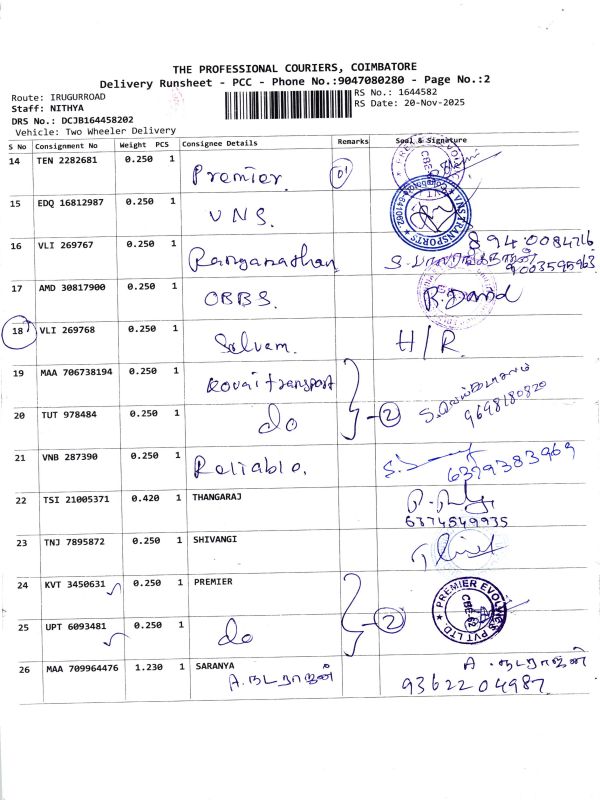 THE PROFESSIONAL COURIERS, COIMBATORE
Delivery Runsheet - PCC - Phone No.:9047080280 - Page No.:2
Route: IRUGURROAD RS No.: 1644582
Staff: NITHYA RS Date: 20-Nov-2025
DRS No.: DCJB164458202
Vehicle: Two Wheeler Delivery
S No Consignment No Weight PCS Consignee Details Remarks Seal & Signature
14 TEN 2282681 0.250 1 Premier. 01
15 EDQ 16812987 0.250 1 VNS. VNS TRANSPORTS
16 VLI 269767 0.250 1 Ranganathan 8940084716
9003595963
17 AMD 30817900 0.250 1 OBBS. R. David
18 VLI 269768 0.250 1 Selvam. H/R.
19 MAA 706738194 0.250 1 Kovai transport
20 TUT 978484 0.250 1 do 2 9698180820
21 VNB 287390 0.250 1 Reliable. 6379383969
22 TSI 21005371 0.420 1 THANGARAJ
6374549935
23 TNJ 7895872 0.250 1 SHIVANGI
24 KVT 3450631 0.250 1 PREMIER
25 UPT 6093481 0.250 1 do 2 PREMIER EVOLVICS PVT LTD. CBE-62
26 MAA 709964476 1.230 1 SARANYA A. நடராஜன்
A. நடராஜன் 9362204987